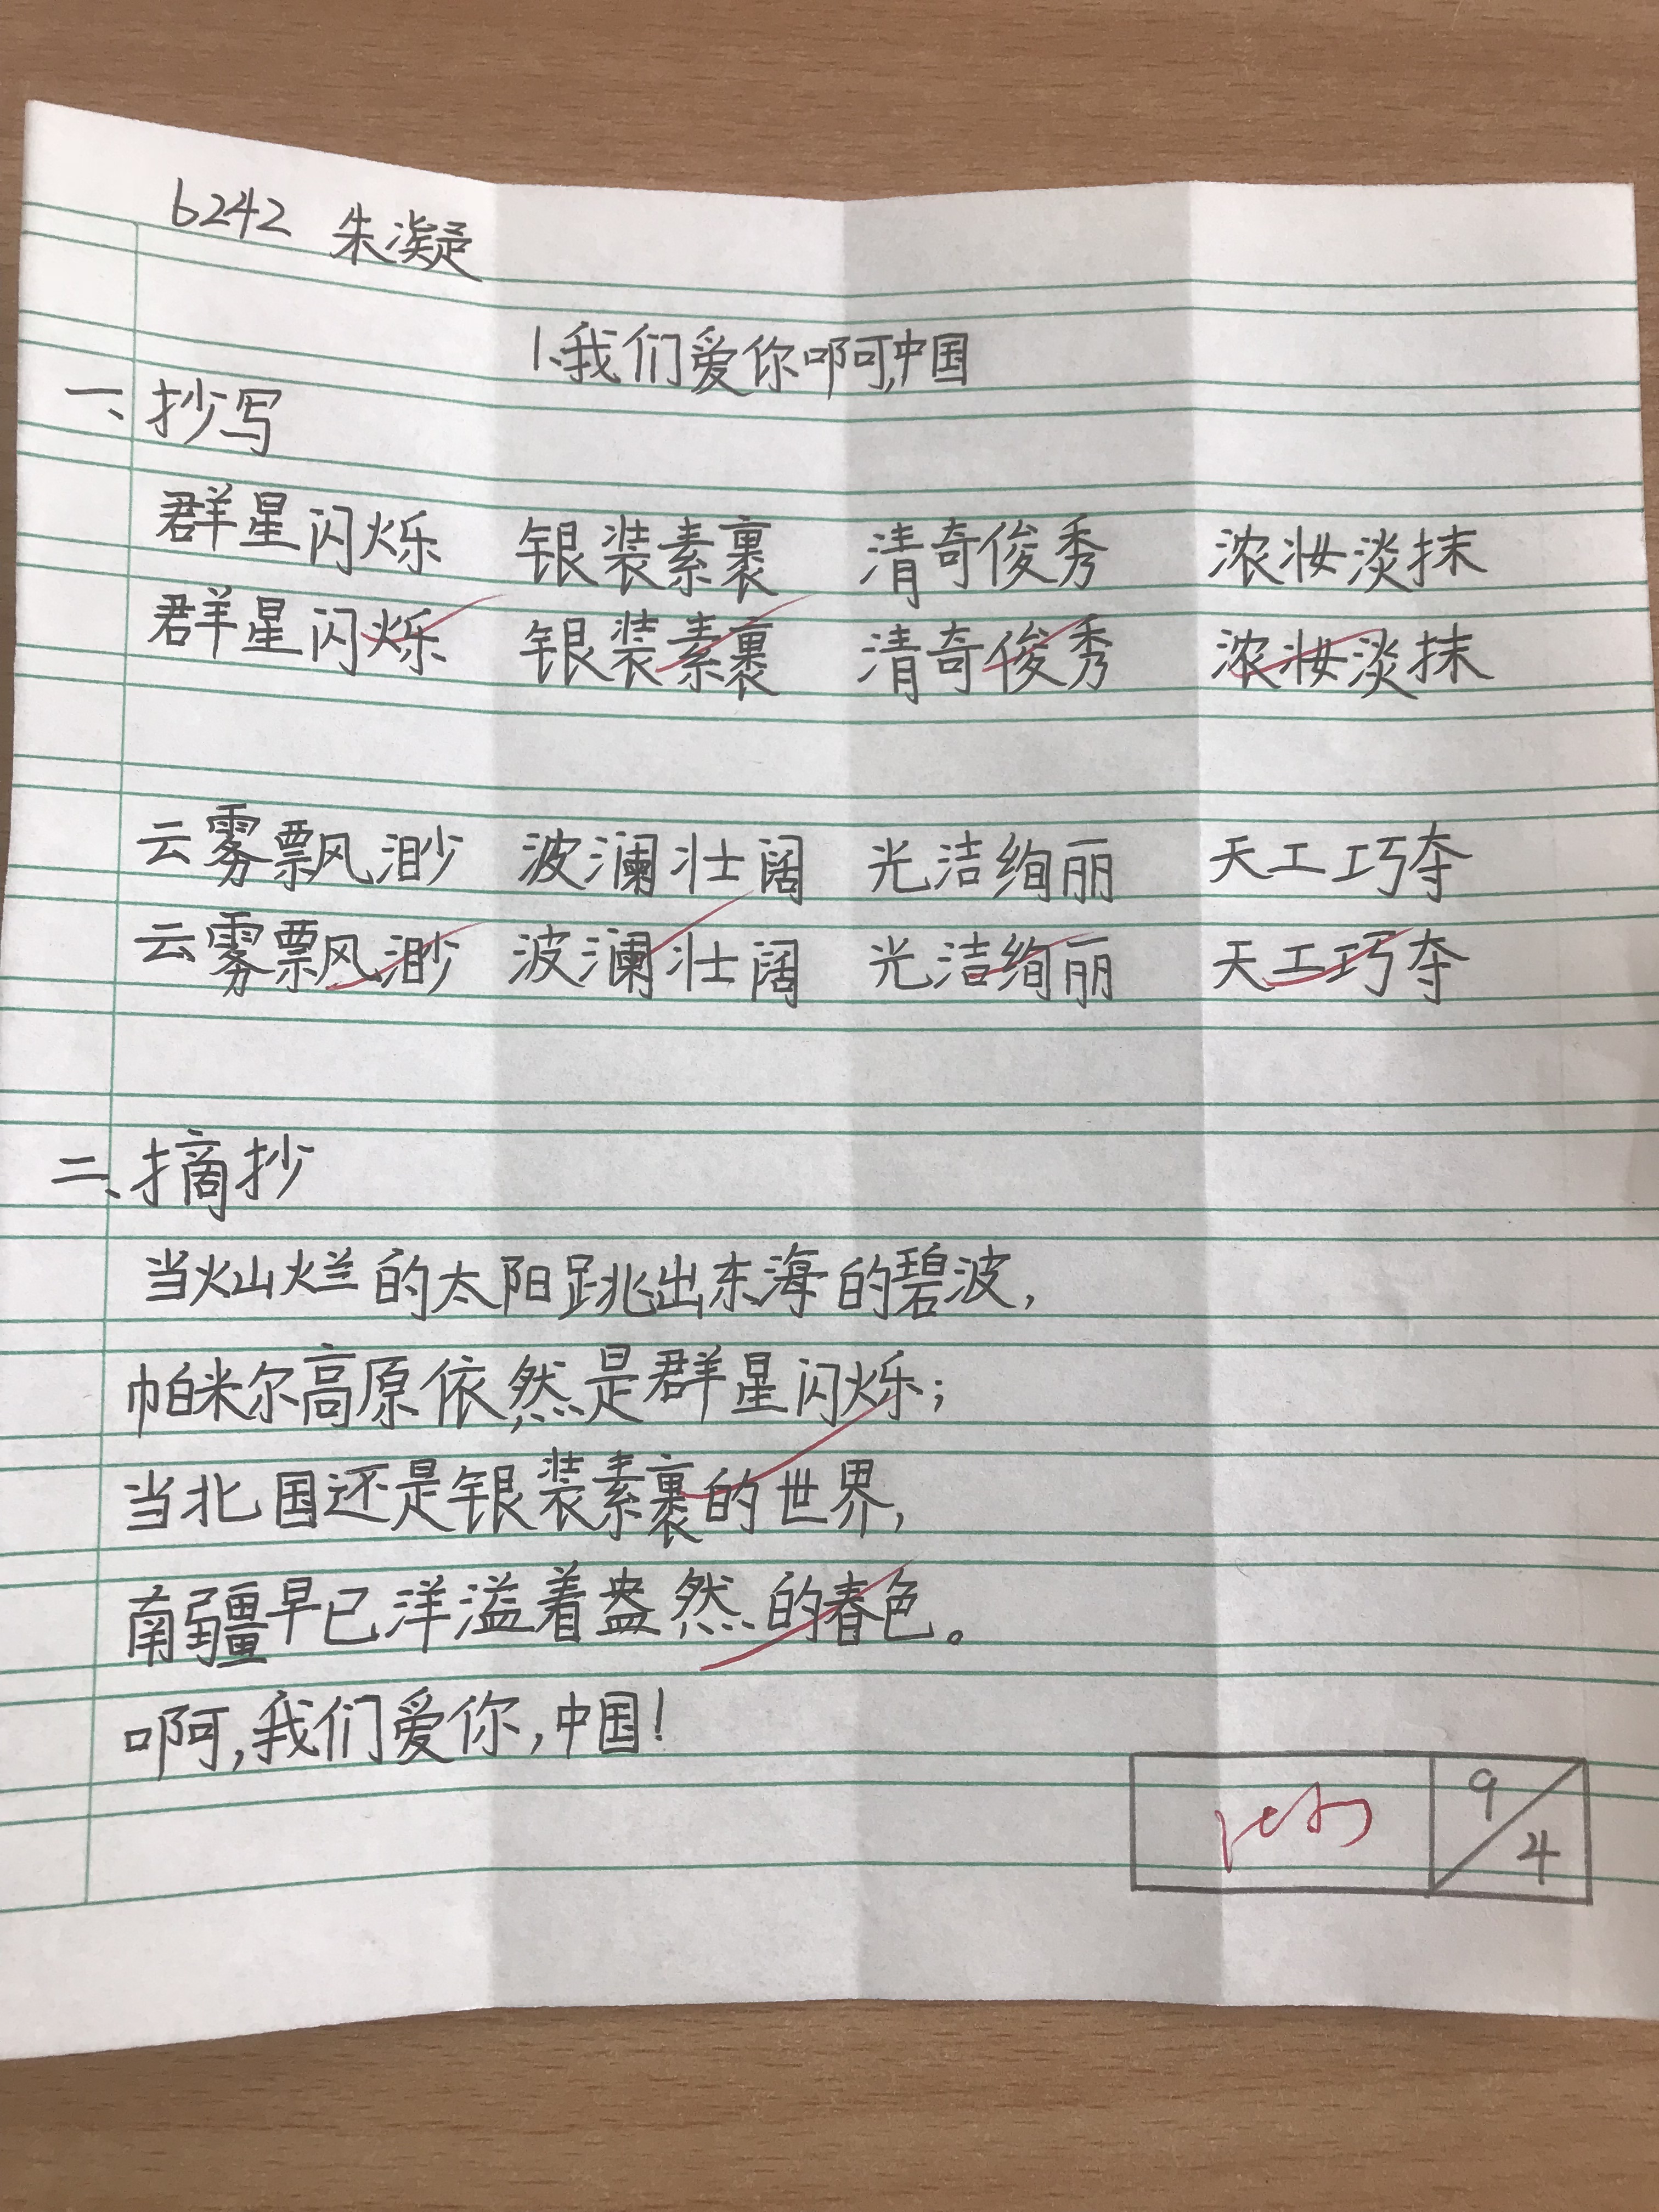 6242 朱凝
1.我们爱你啊,中国
一、抄写
群星闪烁 银装素裹 清奇俊秀 浓妆淡抹
群星闪烁 银装素裹 清奇俊秀 浓妆淡抹
云雾飘渺 波澜壮阔 光洁绚丽 天工巧夺
云雾飘渺 波澜壮阔 光洁绚丽 天工巧夺
二、摘抄
当灿烂的太阳跳出东海的碧波,
帕米尔高原依然是群星闪烁;
当北国还是银装素裹的世界,
南疆早已洋溢着盎然的春色。
啊,我们爱你,中国!
9/4